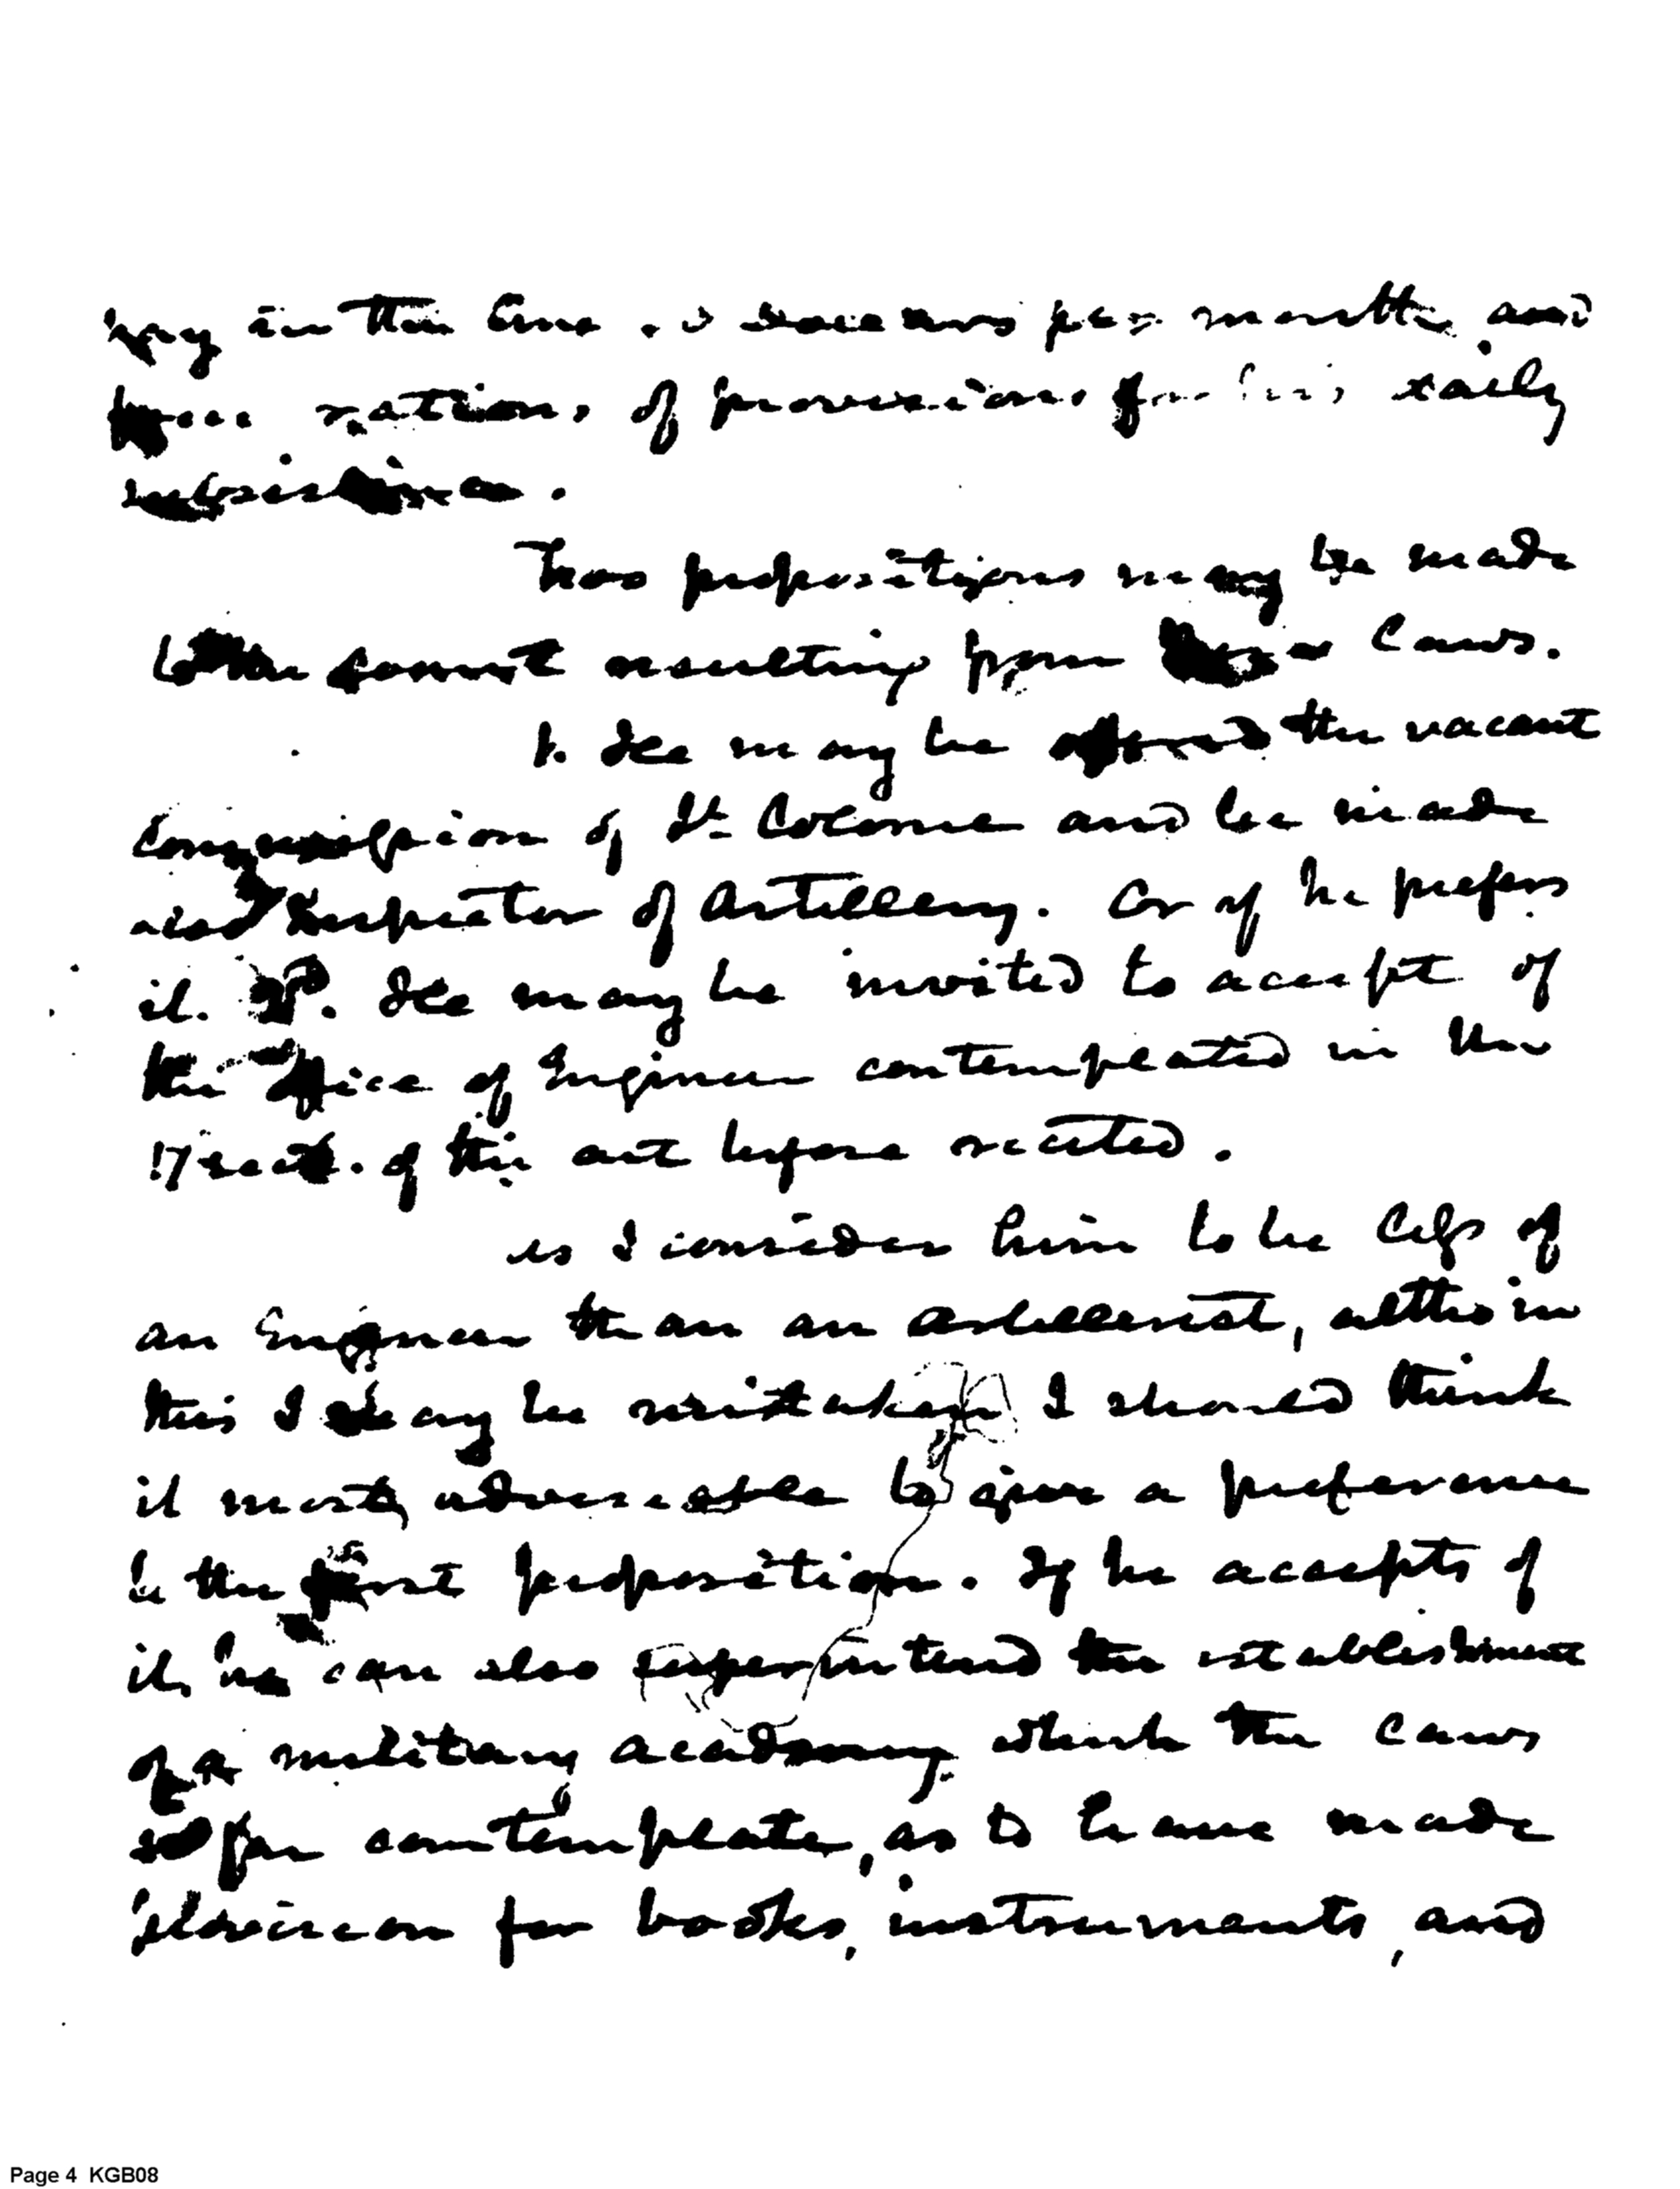 pay in this case is dollars per month, and
rations of provisions for his daily
subsistence.
Two propositions may be made
to the Count resulting from these laws.
1. He may be offered the vacant
commission of Lt Colonel and be made
Inspector of Artillery. Or if he prefers
it. 2d. He may be invited to accept of
the office of Engineer contemplated in the
7 sect. of the act before recited.
As I consider him to be less of
an Engineer than an artillerist, altho in
this I may be mistaken I should think
it most adviseable to give a preference
to the first proposition. If he accepts of
it, he can also superintend the establishment
of a military academy which the laws
so far contemplate, as to have made
provision for books, instruments, and
Page 4 KGB08